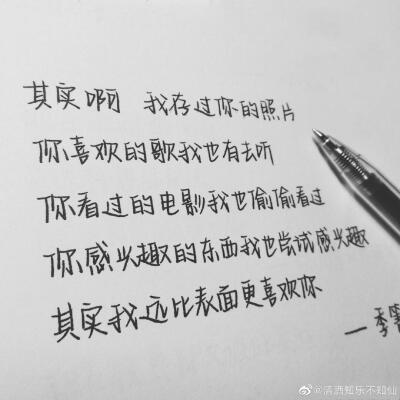 其实啊 我存过你的照片
你喜欢的歌我也有去听
你看过的电影我也偷偷看过
你感兴趣的东西我也尝试感兴趣
其实我远比表面更喜欢你
—季
@清酒知乐不知仙